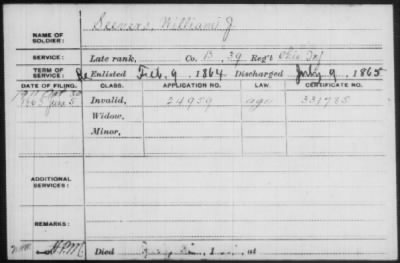 NAME OF SOLDIER: Seevers, William J.
SERVICE: Late rank, Co. B, 39 Reg't Ohio Inf
TERM OF SERVICE: Re Enlisted Feb. 9, 1864 Discharged July 9, 1865
DATE OF FILING. CLASS. APPLICATION NO. LAW. CERTIFICATE NO.
Invalid, 24959 age 331785
Widow,
Minor,
ADDITIONAL SERVICES:
REMARKS:
Died